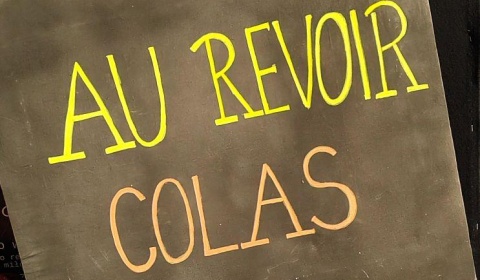 AU REVOIR
COLAS